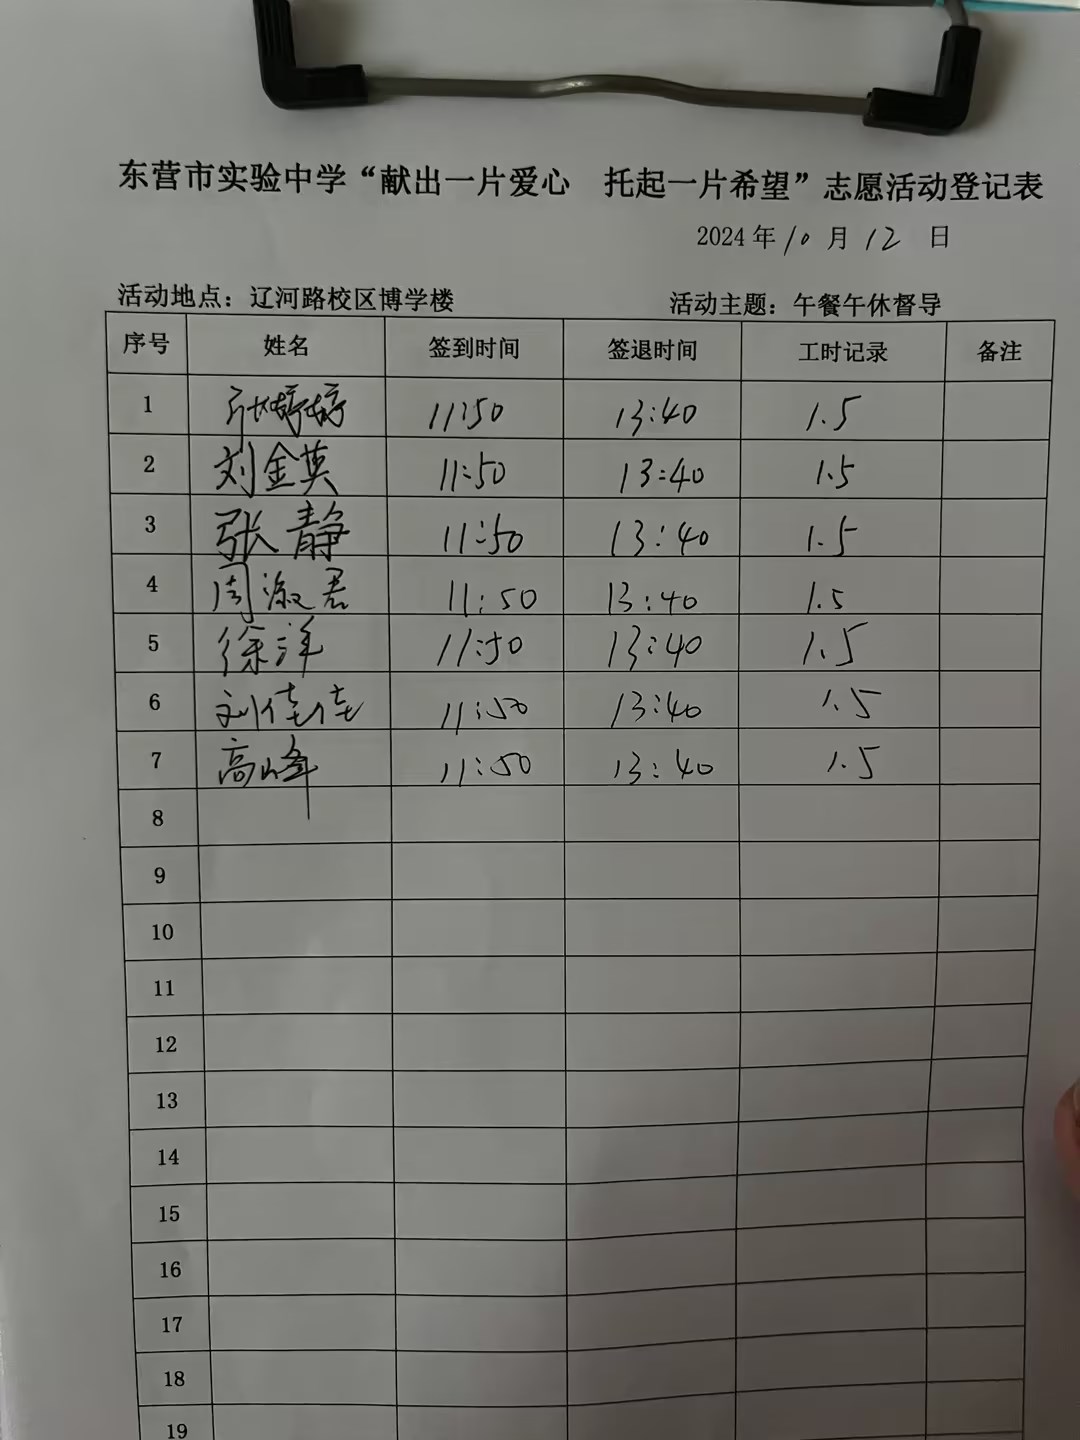 东营市实验中学“献出一片爱心 托起一片希望”志愿活动登记表
2024年10月12日
活动地点：辽河路校区博学楼 活动主题：午餐午休督导
序号 姓名 签到时间 签退时间 工时记录 备注
1 婷婷 11:50 13:40 1.5
2 刘金英 11:50 13:40 1.5
3 张静 11:50 13:40 1.5
4 周淑君 11:50 13:40 1.5
5 徐洋 11:50 13:40 1.5
6 刘佳佳 11:50 13:40 1.5
7 高峰 11:50 13:40 1.5
8
9
10
11
12
13
14
15
16
17
18
19